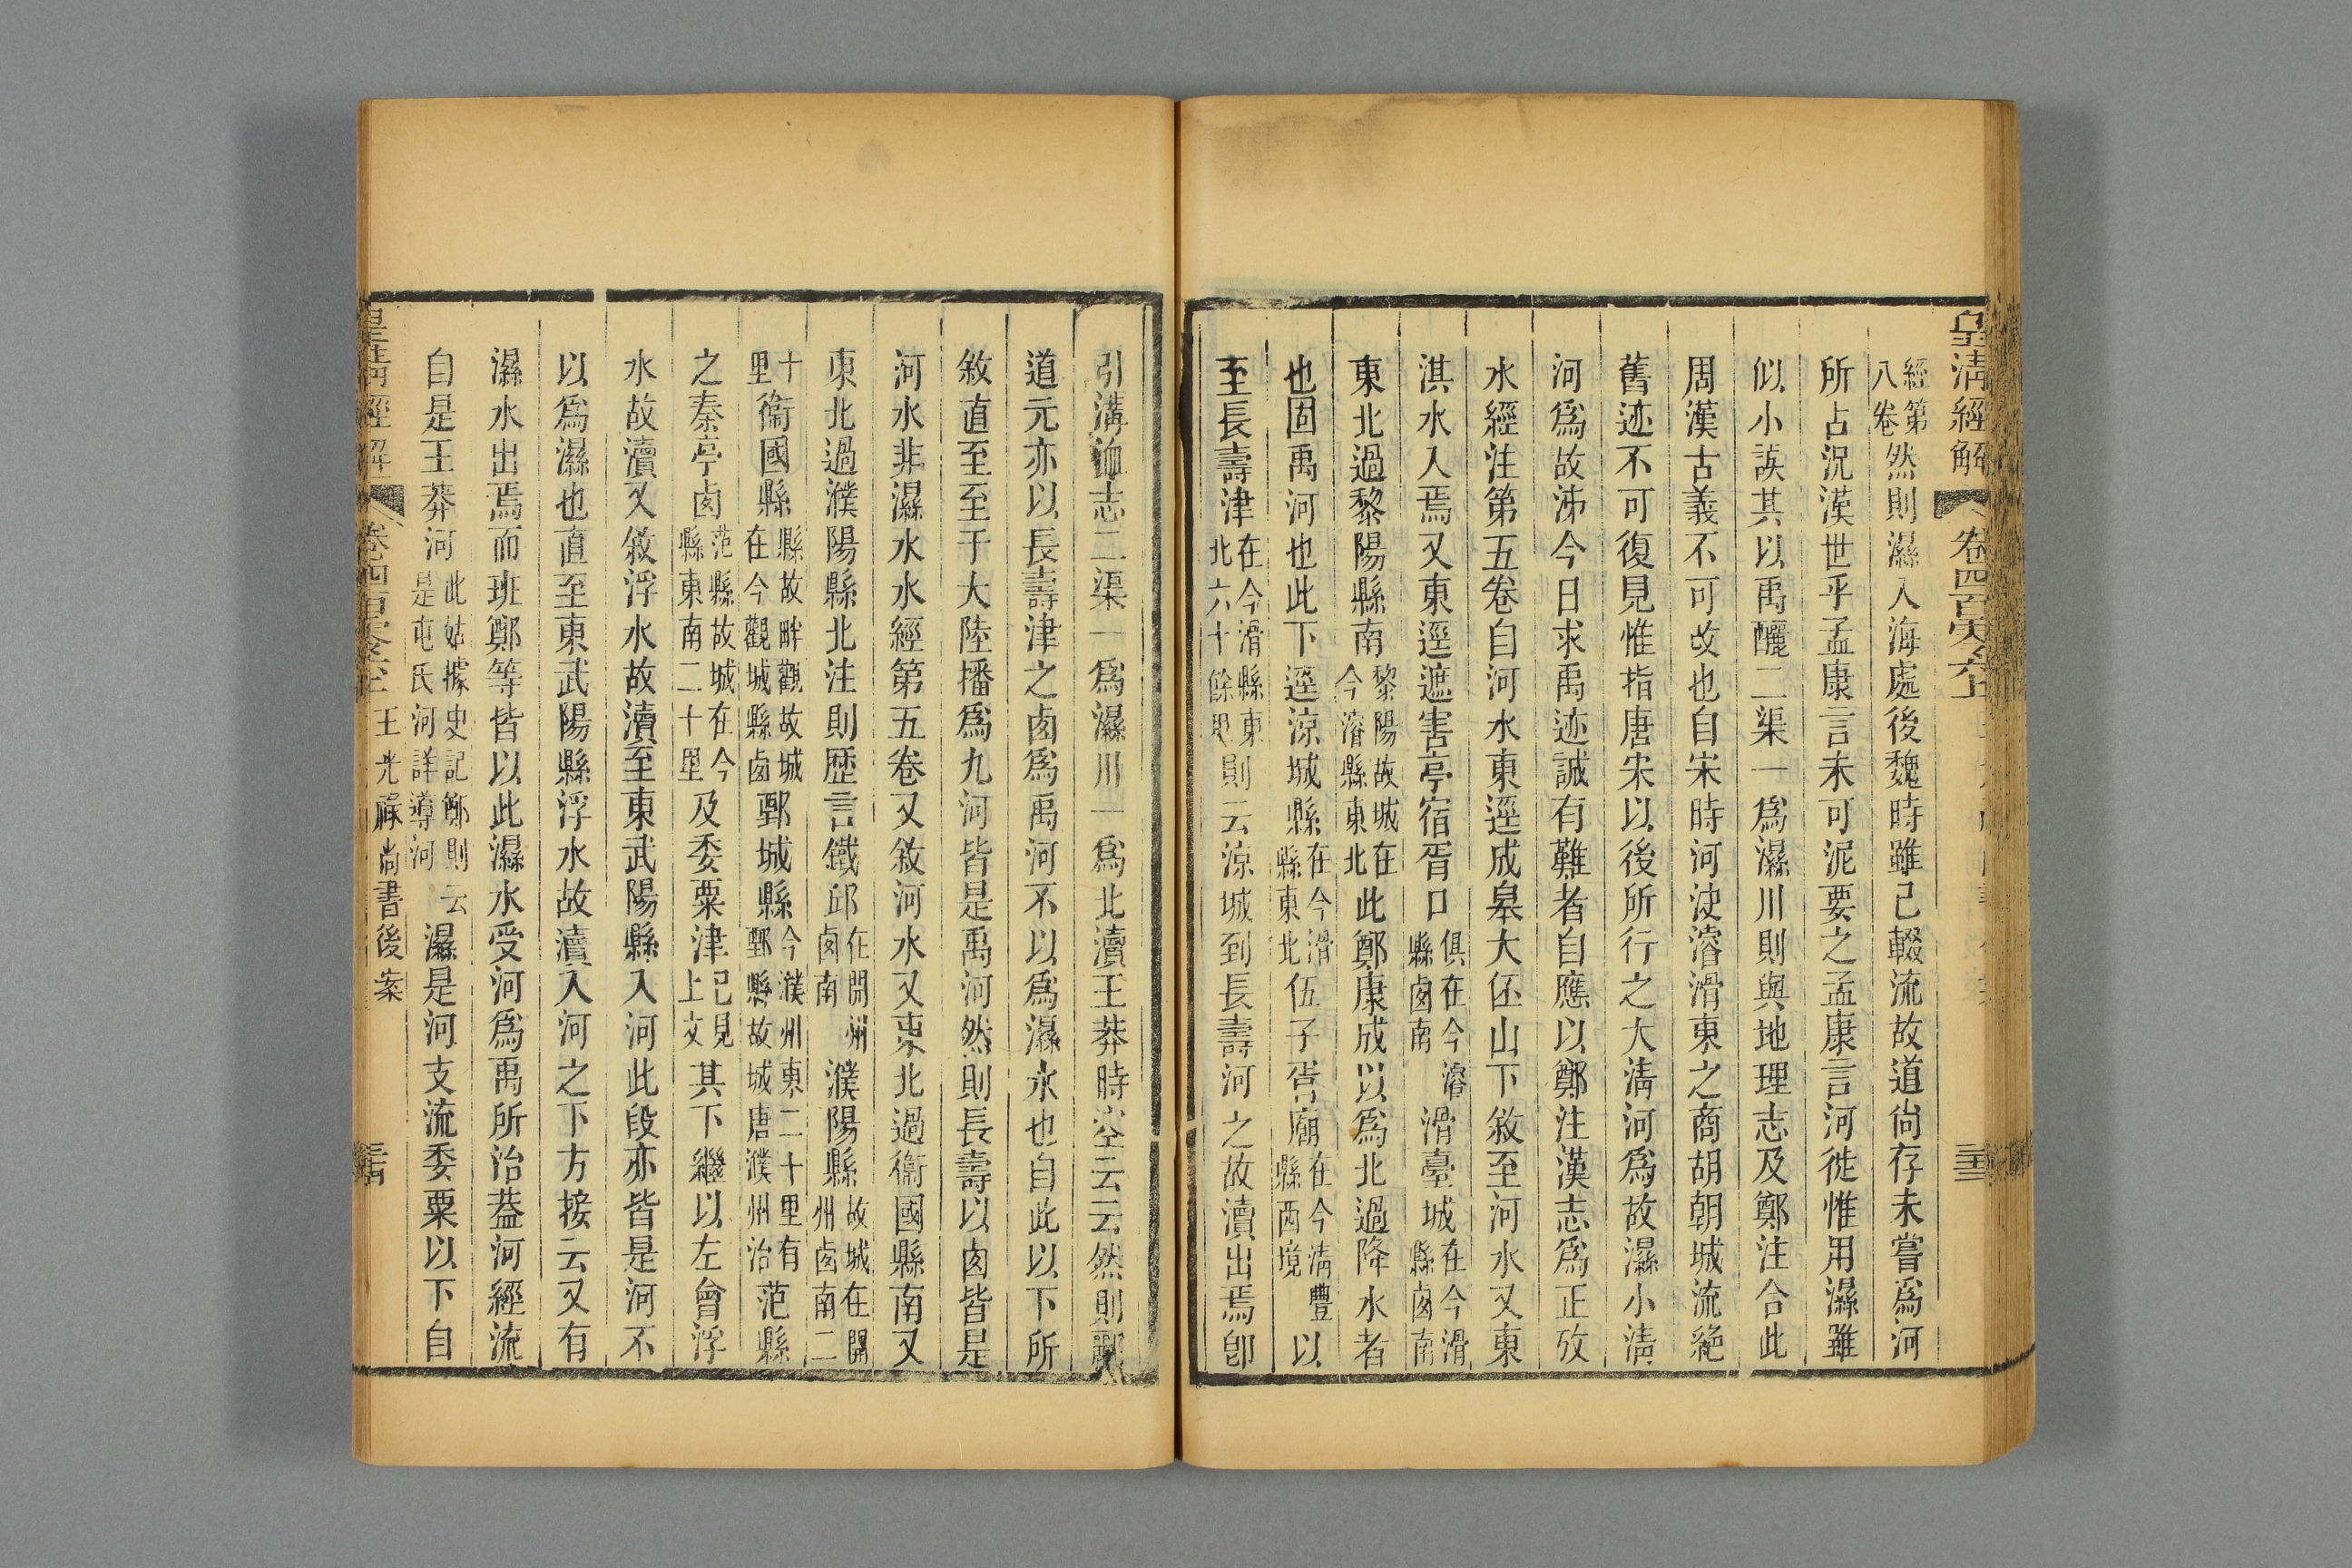 皇淸經解 卷四百
經第八卷然則濕入海處後魏時雖已輟流故道尙存未嘗爲河
所占況漢世乎孟康言未可泥要之孟康言河徙惟用濕雖
似小誤其以禹釃二渠一爲濕川則與地理志及鄭注合此
周漢古義不可改也自宋時河決濬滑東之商胡朝城流絶
舊迹不可復見惟指唐宋以後所行之大淸河爲故濕小淸
河爲故泲今日求禹迹誠有難者自應以鄭注漢志爲正攷
水經注第五卷自河水東逕成皋大伾山下敘至河水又東
淇水入焉又東逕遮害亭宿胥口俱在今濬縣卤南滑臺城在今滑縣卤南
東北過黎陽縣南黎陽故城在今濬縣東北此鄭康成以爲北過降水者
也固禹河也此下逕涼城縣在今滑縣東北伍子胥廟在今淸豐縣西境以
至長壽津在今滑縣東北六十餘里則云涼城到長壽河之故瀆出焉卽
三十三
引溝洫志二渠一爲濕川一爲北瀆王莽時空云云然則酈
道元亦以長壽津之卤爲禹河不以爲濕水也自此以下所
敘直至至于大陸播爲九河皆是禹河然則長壽以卤皆是
河水非濕水水經第五卷又敘河水又東北過衞國縣南又
東北過濮陽縣北注則歴言鐵邱在開州卤南濮陽縣故城在開州卤南二
十里衞國縣縣故畔觀故城在今觀城縣卤鄄城縣今濮州東二十里有鄄縣故城唐濮州治范縣
之秦亭卤范縣故城在今縣東南二十里及委粟津已見上文其下繼以左會浮
水故瀆又敘浮水故瀆至東武陽縣入河此段亦皆是河不
以爲濕也直至東武陽縣浮水故瀆入河之下方接云又有
濕水出焉而班鄭等皆以此濕水受河爲禹所治葢河經流
自是王莽河此姑據史記鄭則云是屯氏河詳導河濕是河支流委粟以下自
皇淸經解 卷四百 王光祿尙書後案 三十四